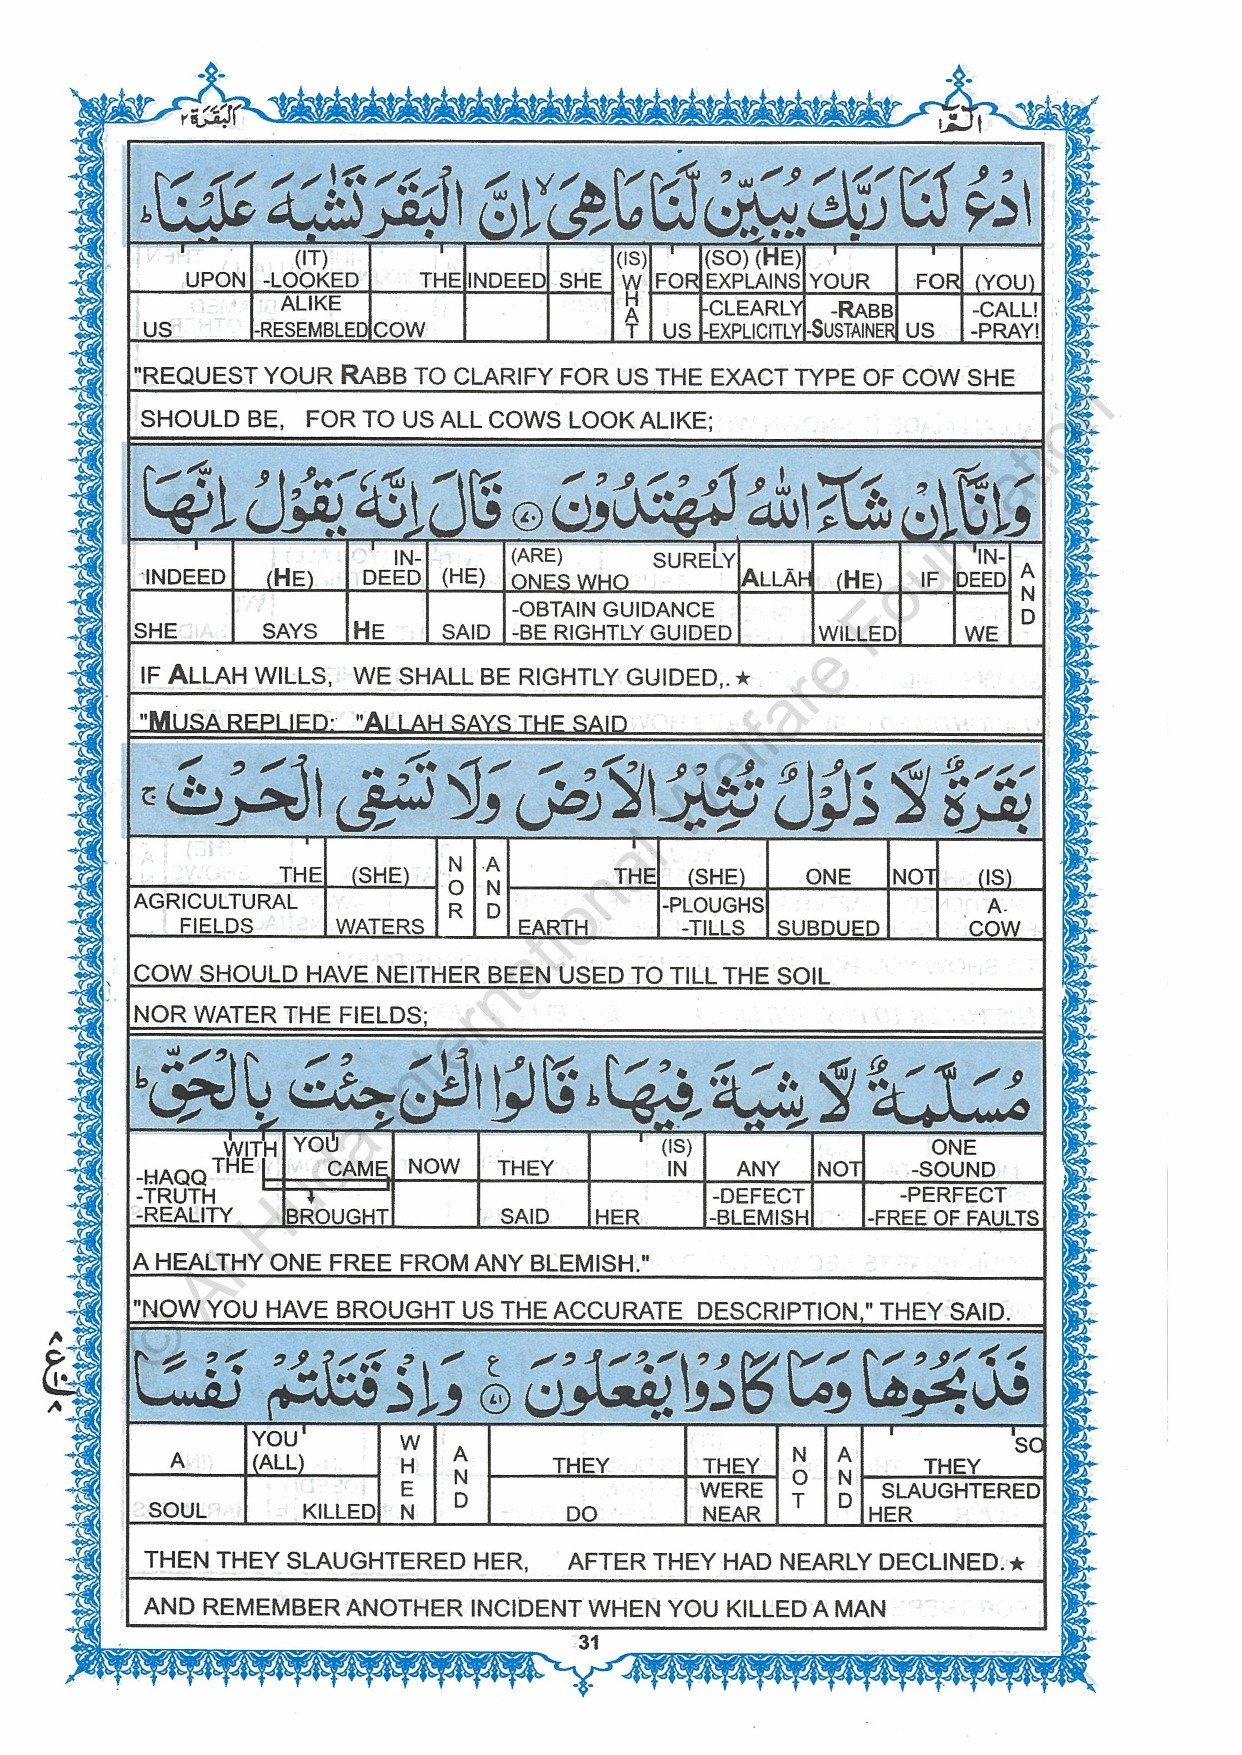 البقرة ٢
الٓمّٓ ١
ادْعُ لَنَا رَبَّكَ يُبَيِّنْ لَّنَا مَا هِىَ ۙ اِنَّ الْبَقَرَ تَشٰبَهَ عَلَيْنَا ؕ
UPON (IT) -LOOKED THE INDEED SHE (IS) WHAT FOR (SO) (HE) EXPLAINS YOUR FOR (YOU)
US ALIKE -RESEMBLED COW US -CLEARLY -EXPLICITLY -RABB -SUSTAINER US -CALL! -PRAY!
"REQUEST YOUR RABB TO CLARIFY FOR US THE EXACT TYPE OF COW SHE
SHOULD BE, FOR TO US ALL COWS LOOK ALIKE;
وَاِنَّآ اِنْ شَآءَ اللّٰهُ لَمُهْتَدُوْنَ ۝٧٠ قَالَ اِنَّهٗ يَقُوْلُ اِنَّهَا
INDEED (HE) IN-DEED (HE) (ARE) ONES WHO SURELY ALLĀH (HE) IF IN-DEED AND
SHE SAYS HE SAID -OBTAIN GUIDANCE -BE RIGHTLY GUIDED WILLED WE
IF ALLAH WILLS, WE SHALL BE RIGHTLY GUIDED,. ★
"MUSA REPLIED: "ALLAH SAYS THE SAID
بَقَرَةٌ لَّا ذَلُوْلٌ تُثِيْرُ الْاَرْضَ وَلَا تَسْقِى الْحَرْثَ ۚ
THE (SHE) NOR AND THE (SHE) ONE NOT (IS)
AGRICULTURAL FIELDS WATERS EARTH -PLOUGHS -TILLS SUBDUED A. COW
COW SHOULD HAVE NEITHER BEEN USED TO TILL THE SOIL
NOR WATER THE FIELDS;
مُسَلَّمَةٌ لَّا شِيَةَ فِيْهَا ؕ قَالُوا الْـٰٔنَ جِئْتَ بِالْحَقِّ ؕ
WITH THE YOU CAME NOW THEY (IS) IN ANY NOT ONE -SOUND
-HAQQ -TRUTH -REALITY BROUGHT SAID HER -DEFECT -BLEMISH -PERFECT -FREE OF FAULTS
A HEALTHY ONE FREE FROM ANY BLEMISH."
"NOW YOU HAVE BROUGHT US THE ACCURATE DESCRIPTION," THEY SAID.
فَذَبَحُوْهَا وَمَا كَادُوْا يَفْعَلُوْنَ ۝٧١ ع وَاِذْ قَتَلْتُمْ نَفْسًا
٨ ع ١٠ ٨
A YOU (ALL) WHEN AND THEY THEY NOT AND SO THEY
SOUL KILLED DO WERE NEAR SLAUGHTERED HER
THEN THEY SLAUGHTERED HER, AFTER THEY HAD NEARLY DECLINED. ★
AND REMEMBER ANOTHER INCIDENT WHEN YOU KILLED A MAN
31
© Al Huda International Welfare Foundation